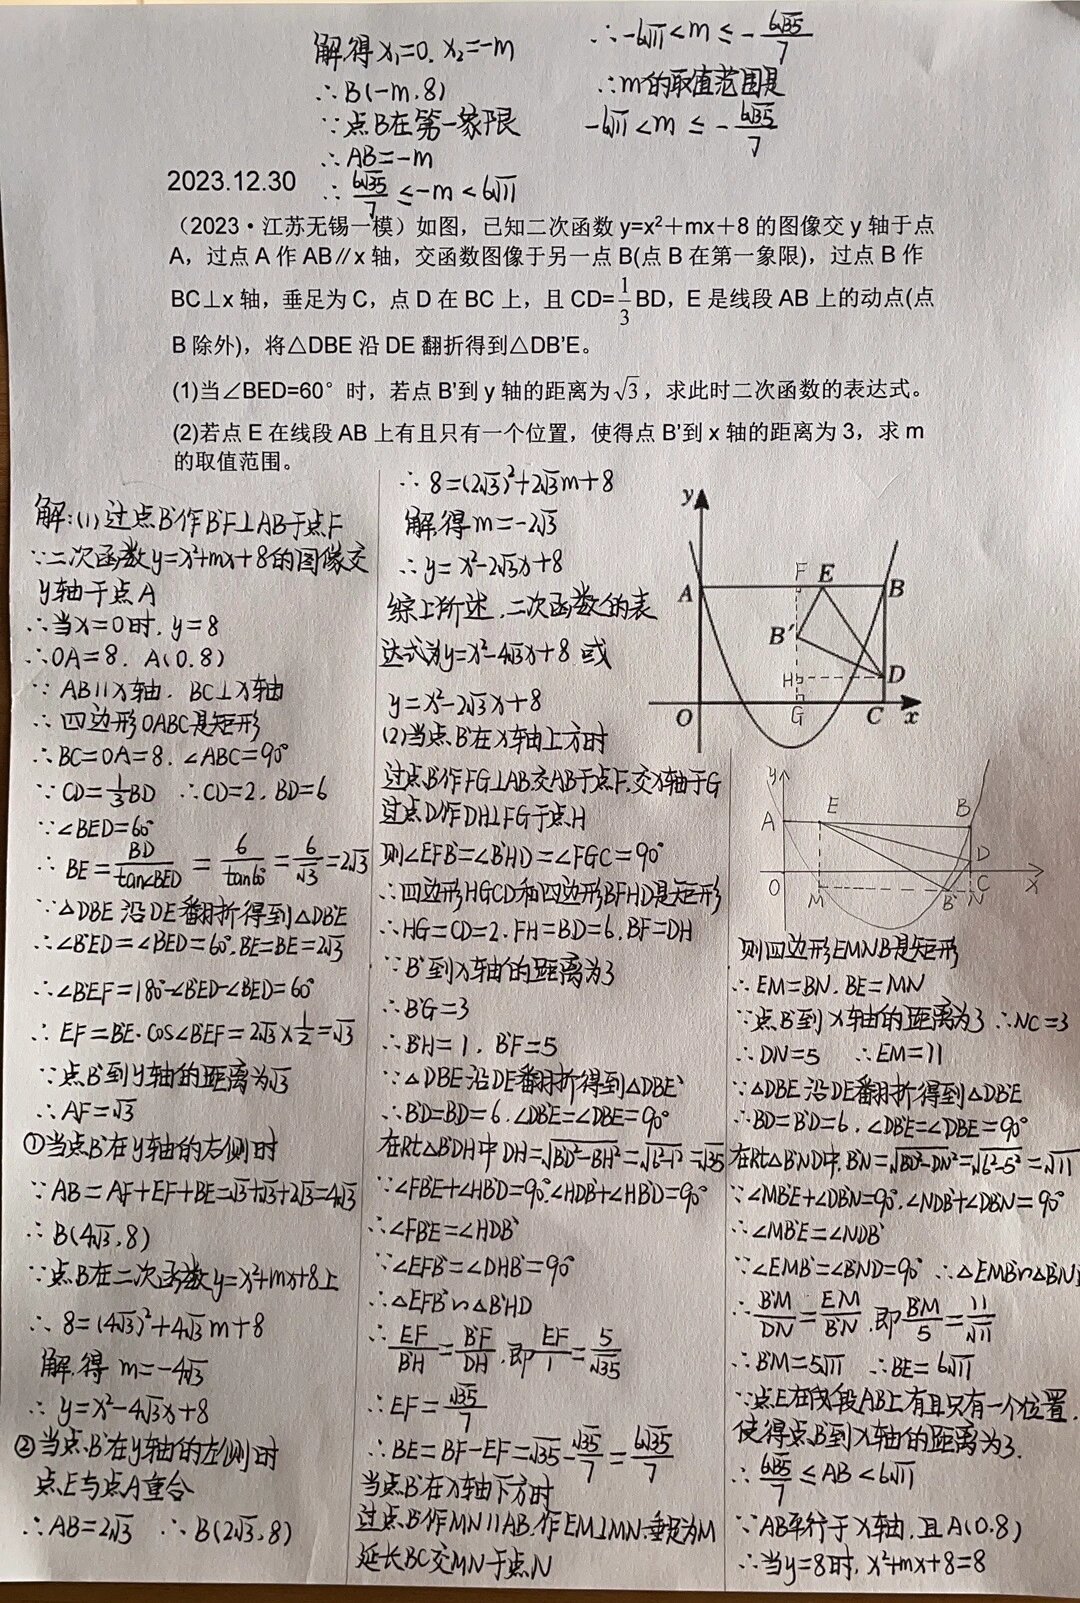 解得x₁=0, x₂=-m
∴B(-m,8)
∵点B在第一象限
∴AB=-m
∴6√35/7≤-m<6√11
∴-6√11<m≤-6√35/7
∴m的取值范围是
-6√11<m≤-6√35/7
2023.12.30
(2023·江苏无锡一模)如图，已知二次函数y=x²+mx+8的图像交y轴于点
A，过点A作AB∥x轴，交函数图像于另一点B(点B在第一象限)，过点B作
BC⊥x轴，垂足为C，点D在BC上，且CD=1/3BD，E是线段AB上的动点(点
B除外)，将△DBE沿DE翻折得到△DB'E。
(1)当∠BED=60°时，若点B'到y轴的距离为√3，求此时二次函数的表达式。
(2)若点E在线段AB上有且只有一个位置，使得点B'到x轴的距离为3，求m
的取值范围。
解:(1)过点B'作B'F⊥AB于点F
∵二次函数y=x²+mx+8的图像交
y轴于点A
∴当x=0时,y=8
∴OA=8, A(0,8)
∵AB∥x轴, BC⊥x轴
∴四边形OABC是矩形
∴BC=OA=8, ∠ABC=90°
∵CD=1/3BD ∴CD=2, BD=6
∵∠BED=60°
∴BE=BD/tan∠BED=6/tan60°=6/√3=2√3
∵△DBE沿DE翻折得到△DB'E
∴∠B'ED=∠BED=60°,B'E=BE=2√3
∴∠B'EF=180°-∠B'ED-∠BED=60°
∴EF=B'E·cos∠B'EF=2√3×1/2=√3
∵点B'到y轴的距离为√3
∴AF=√3
①当点B'在y轴的右侧时
∵AB=AF+EF+BE=√3+√3+2√3=4√3
∴B(4√3,8)
∵点B在二次函数y=x²+mx+8上
∴8=(4√3)²+4√3m+8
解得m=-4√3
∴y=x²-4√3x+8
②当点B'在y轴的左侧时
点E与点A重合
∴AB=2√3 ∴B(2√3,8)
∴8=(2√3)²+2√3m+8
解得m=-2√3
∴y=x²-2√3x+8
综上所述,二次函数的表
达式为y=x²-4√3x+8或
y=x²-2√3x+8
(2)当点B'在x轴上方时
过点B'作FG⊥AB,交AB于点F,交x轴于G
过点D作DH⊥FG于点H
则∠EFB'=∠B'HD=∠FGC=90°
∴四边形HGCD和四边形BFHD是矩形
∴HG=CD=2,FH=BD=6,BF=DH
∵B'到x轴的距离为3
∴B'G=3
∴B'H=1, B'F=5
∵△DBE沿DE翻折得到△DB'E
∴B'D=BD=6,∠DB'E=∠DBE=90°
在Rt△B'DH中DH=√B'D²-B'H²=√6²-1²=√35
∵∠FB'E+∠HB'D=90°,∠HDB'+∠HB'D=90°
∴∠FB'E=∠HDB'
∵∠EFB'=∠DHB'=90°
∴△EFB'∽△B'HD
∴EF/B'H=B'F/DH,即EF/1=5/√35
∴EF=√35/7
∴BE=BF-EF=√35-√35/7=6√35/7
当点B'在x轴下方时
过点B'作MN∥AB,作EM⊥MN,垂足为M
延长BC交MN于点N
y
A
F
E
B
B'
H
D
O
G
C
x
y
A
E
B
D
O
C
x
M
B'
N
则四边形EMNB是矩形
∴EM=BN, BE=MN
∵点B'到x轴的距离为3 ∴NC=3
∴DN=5 ∴EM=11
∵△DBE沿DE翻折得到△DB'E
∴BD=B'D=6,∠DB'E=∠DBE=90°
在Rt△B'ND中,B'N=√B'D²-DN²=√6²-5²=√11
∵∠MB'E+∠DB'N=90°,∠NDB'+∠DB'N=90°
∴∠MB'E=∠NDB'
∵∠EMB'=∠B'ND=90° ∴△EMB'∽△B'ND
∴B'M/DN=EM/B'N,即B'M/5=11/√11
∴B'M=5√11 ∴BE=6√11
∵点E在线段AB上有且只有一个位置,
使得点B'到x轴的距离为3.
∴6√35/7≤AB<6√11
∵AB平行于x轴,且A(0,8)
∴当y=8时,x²+mx+8=8